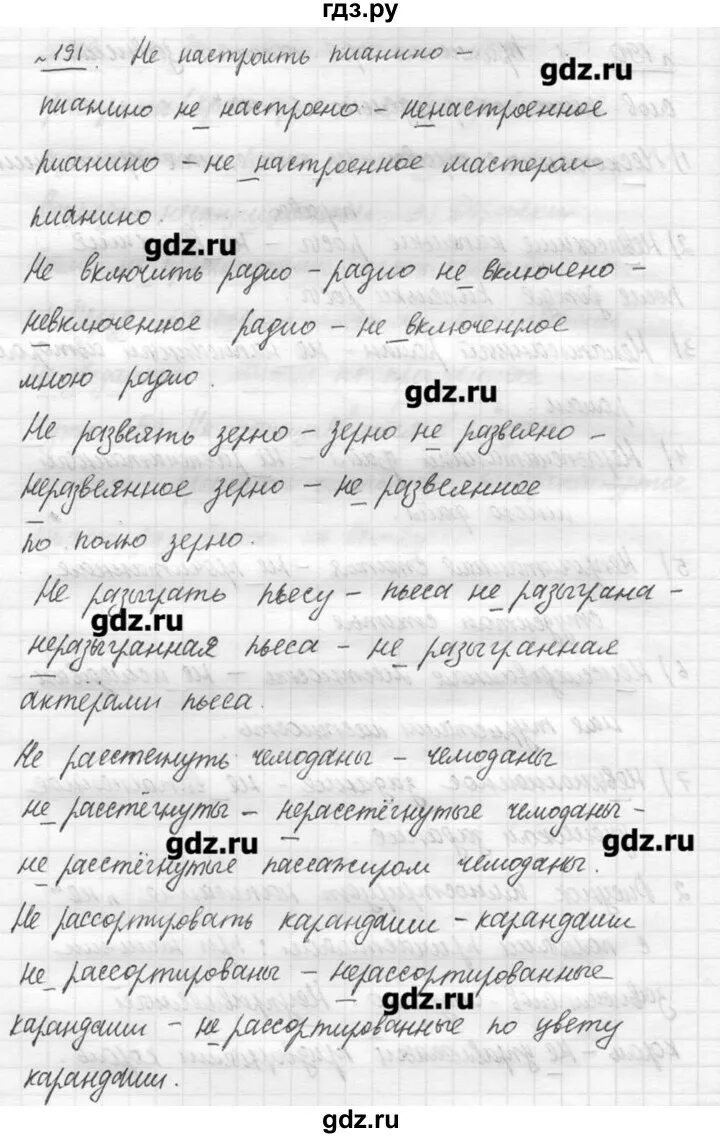 гдз.ру
№191. Не настроить пианино –
gdz.ru
пианино не настроено – ненастроенное
пианино – не настроенное мастером
пианино.
gdz.ru
Не включить радио – радио не включено –
невключенное радио – не включенное
мною радио.
gdz.ru
Не развеять зерно – зерно не развеяно –
неразвеянное зерно – не развеянное
по полю зерно.
Не разыграть пьесу – пьеса не разыграна –
gdz.ru
неразыгранная пьеса – не разыгранная
актерами пьеса.
Не расстегнуть чемоданы – чемоданы
не расстёгнуты – нерасстёгнутые чемоданы –
gdz.ru
gdz.ru
не расстёгнутые пассажиром чемоданы.
Не рассортировать карандаши – карандаши
не рассортированы – нерассортированные
gdz.ru
карандаши – не рассортированные по цвету
карандаши.
gdz.ru